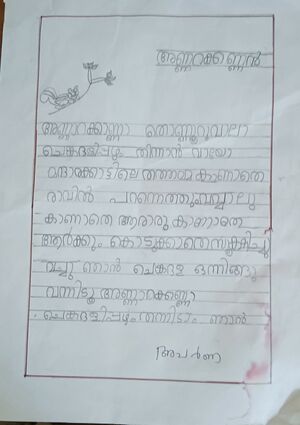 അണ്ണാറക്കണ്ണൻ
അണ്ണാറക്കണ്ണാ തൊണ്ണൂറുവാലാ
ചെങ്കദളിപ്പഴം തിന്നാൻ വായോ
മന്ദാരക്കാട്ടിലെ തത്തമ്മ കാണാതെ
രാവിൽ പറന്നെത്തും വവ്വാലു
കാണാതെ ആരാരു കാണാതേ
ആർക്കും കൊടുക്കാതെ സൂക്ഷിച്ചു
വച്ചു ഞാൻ ചെങ്കദളി ഒന്നിങ്ങു
വന്നിടൂ അണ്ണാറക്കണ്ണാ
ചെങ്കദളിപ്പഴം തന്നിടാം ഞാൻ
അപർണ